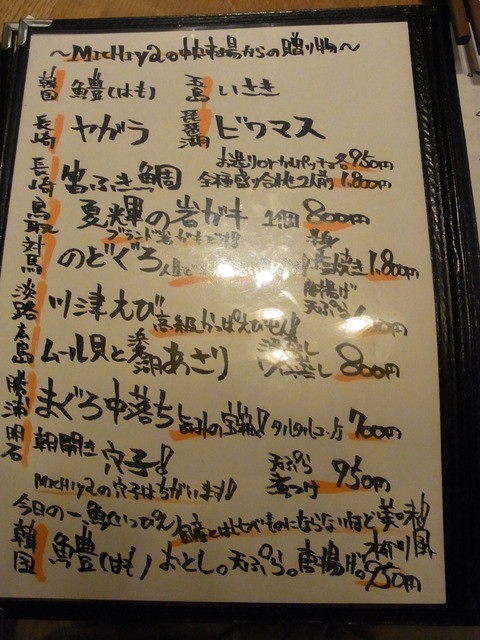 〜MICHIYAの中央市場からの贈り物〜
韓国 鱧(はも) 五島 いさき
長崎 ヤガラ 琵琶湖 ビワマス
お造りorカルパッチョ各950円
長崎 笛ふき鯛 全種盛り合せ2人前1.800円
鳥取 夏輝の岩ガキ 1個 800円
ブランド岩がきです
対馬 のどぐろ 塩焼き 1.800円
淡路 川津えび 唐揚げ 天ぷら
高級かっぱえびせん!
広島 ムール貝と あさり 蒸し 800円
勝浦 まぐろ中落ち 旨みの宝箱! 700円
明石 朝開き 穴子! 天ぷら 煮つけ 950円
MICHIYAの穴子はちがいます!!
今日の一魚(いっぴん) 国産とは比べものにならないほど美味
韓国 鱧(はも) おとし。天ぷら。唐揚げ。950円